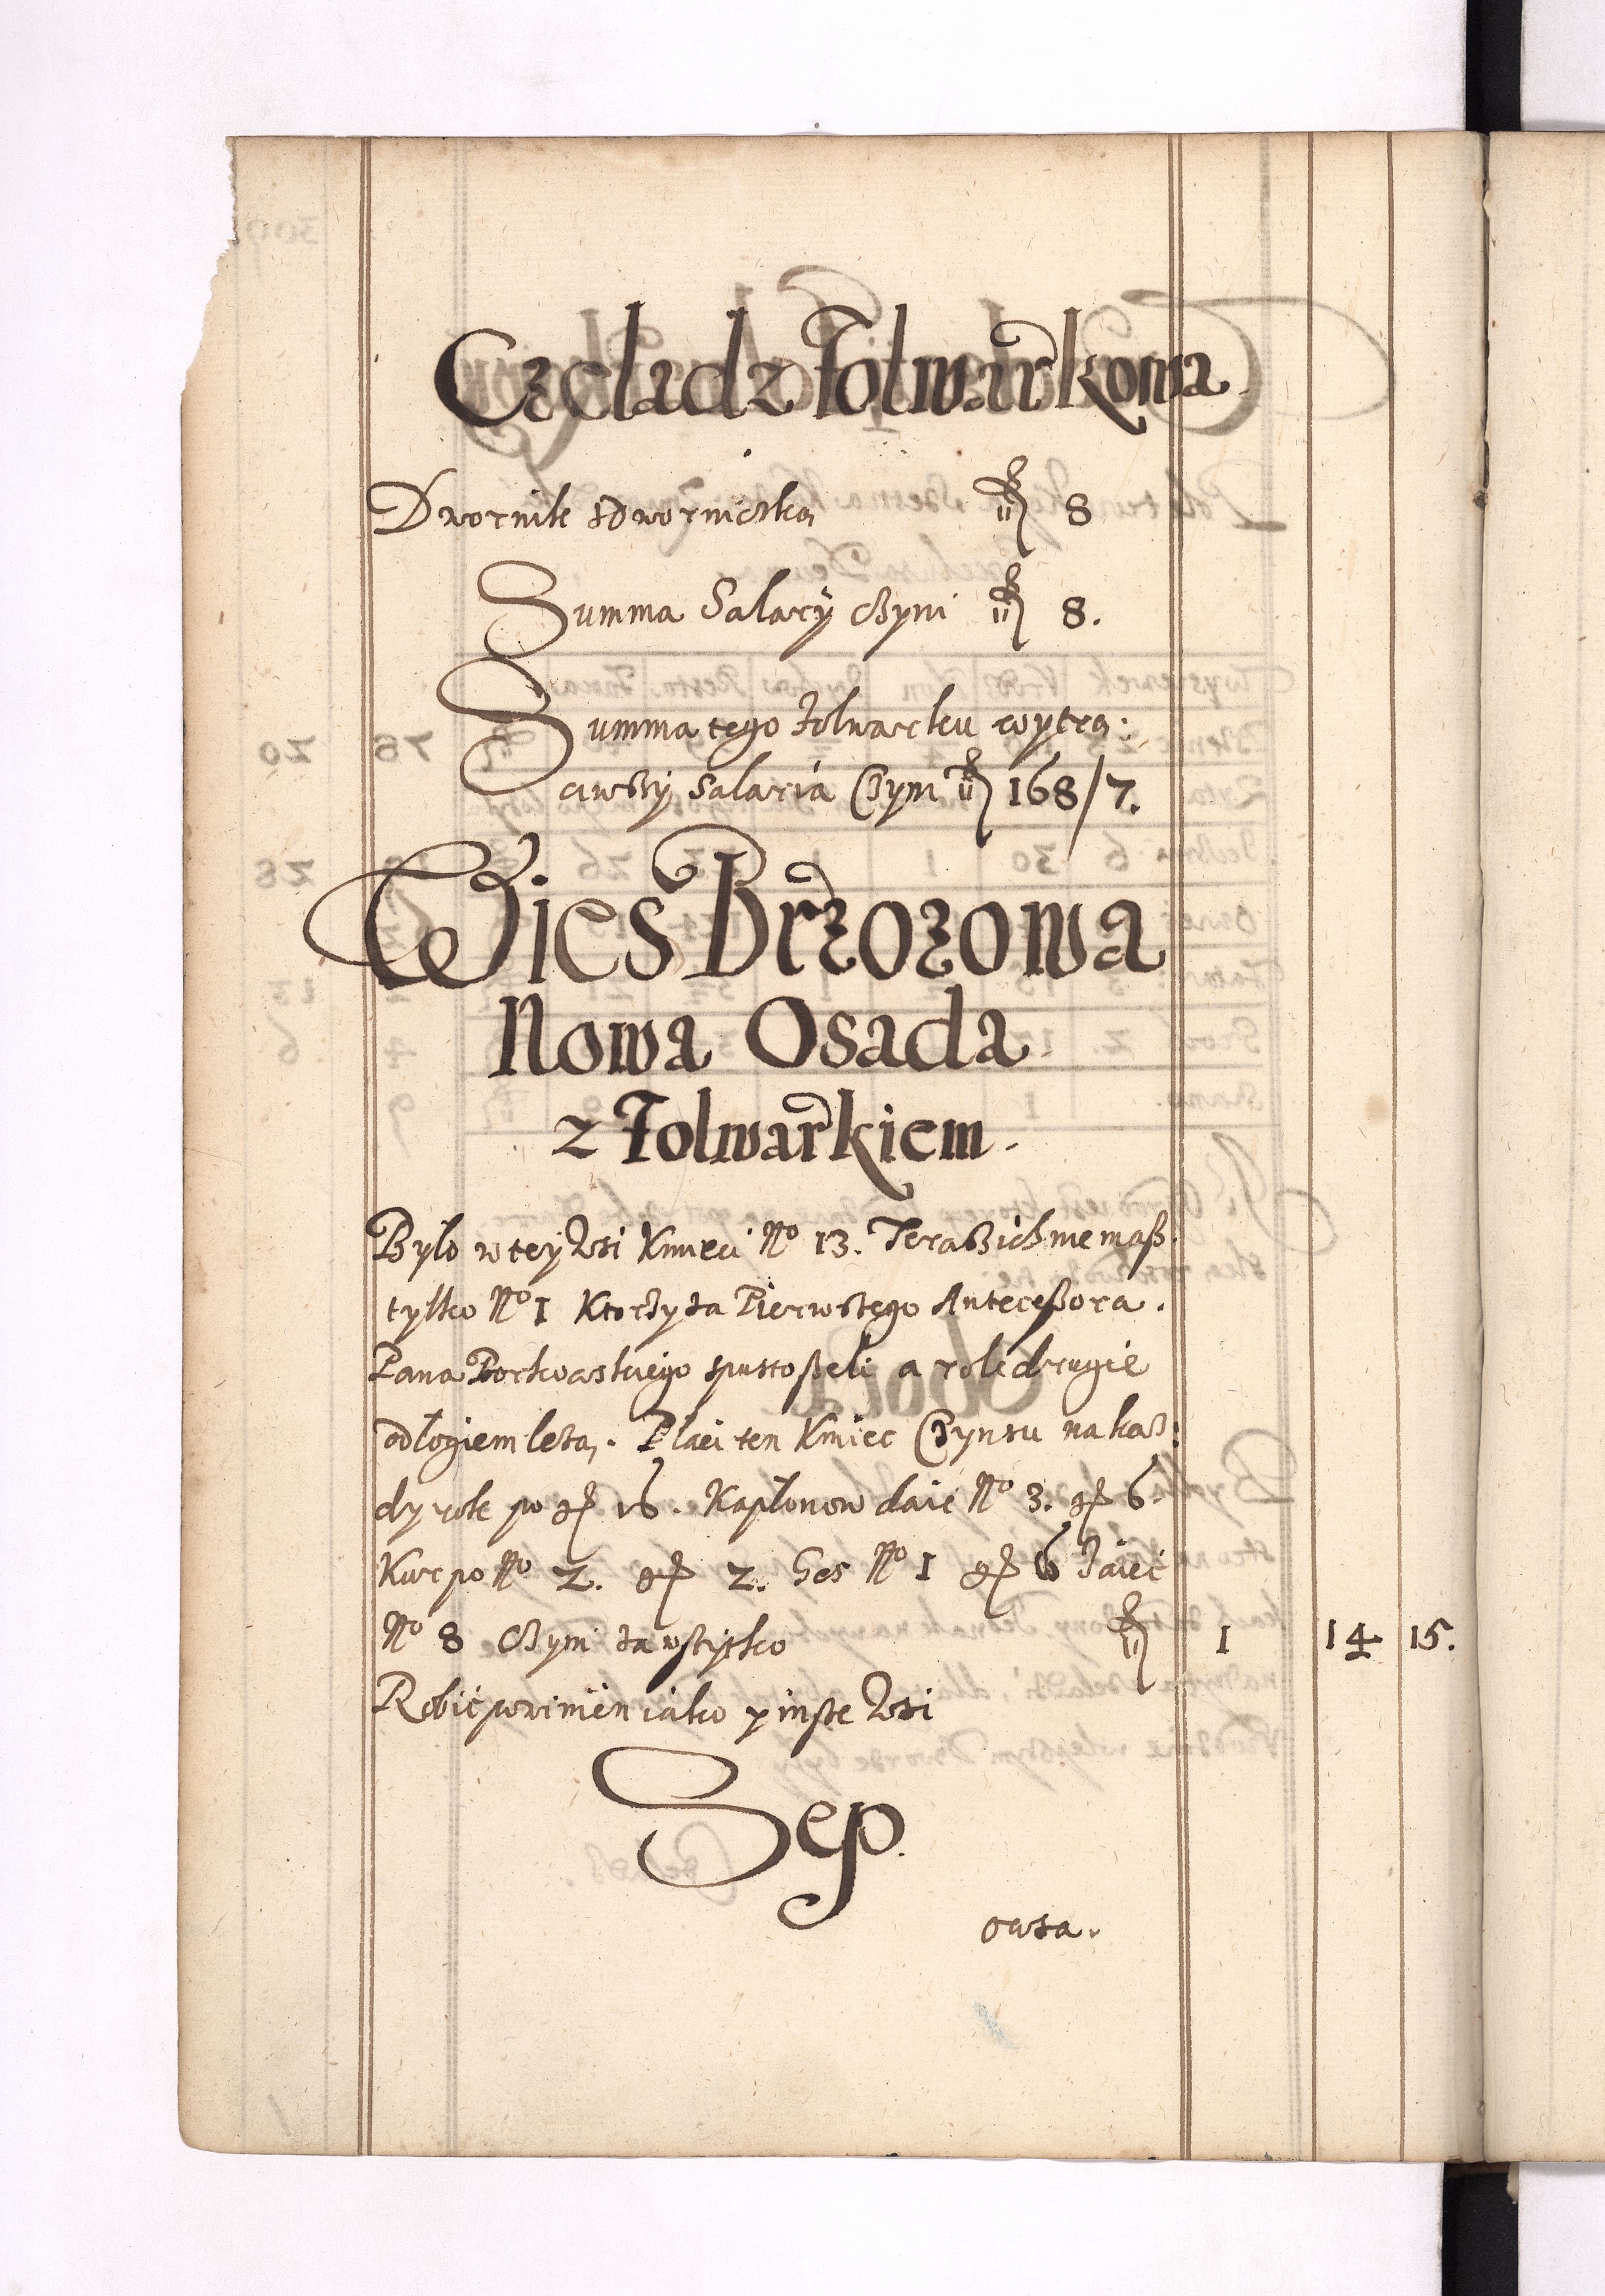 Czeladz Folwarkowa
Dwornik z dworniczką fl 8
Summa Salarÿ czyni fl 8.
Summa tego folwarku wytrą:
ciwszÿ Salaria Czyni fl 168/7.
Wies Brzozowa
Nowa Osada
z Folwarkiem.
Bÿlo w teÿ Wsi Kmieci No 13. Teraz ich nie masz
tylko No 1 Ktorzy za Pierwszego Antecessora.
Pana Borkowskiego spustoszeli a role drugie
odłogiem lezą. Płaci ten Kmiec Czynszu na kaz:
dy rok po gr 16. Kapłonow daie No 3. gr 6.
Kur po No 2. gr 2. Ges No 1 gr 6 Jaiec
No 8 Czyni za wszÿstko fl 1 14 15.
Robic powinien iako y insze Wsi
Sep.
owsa.